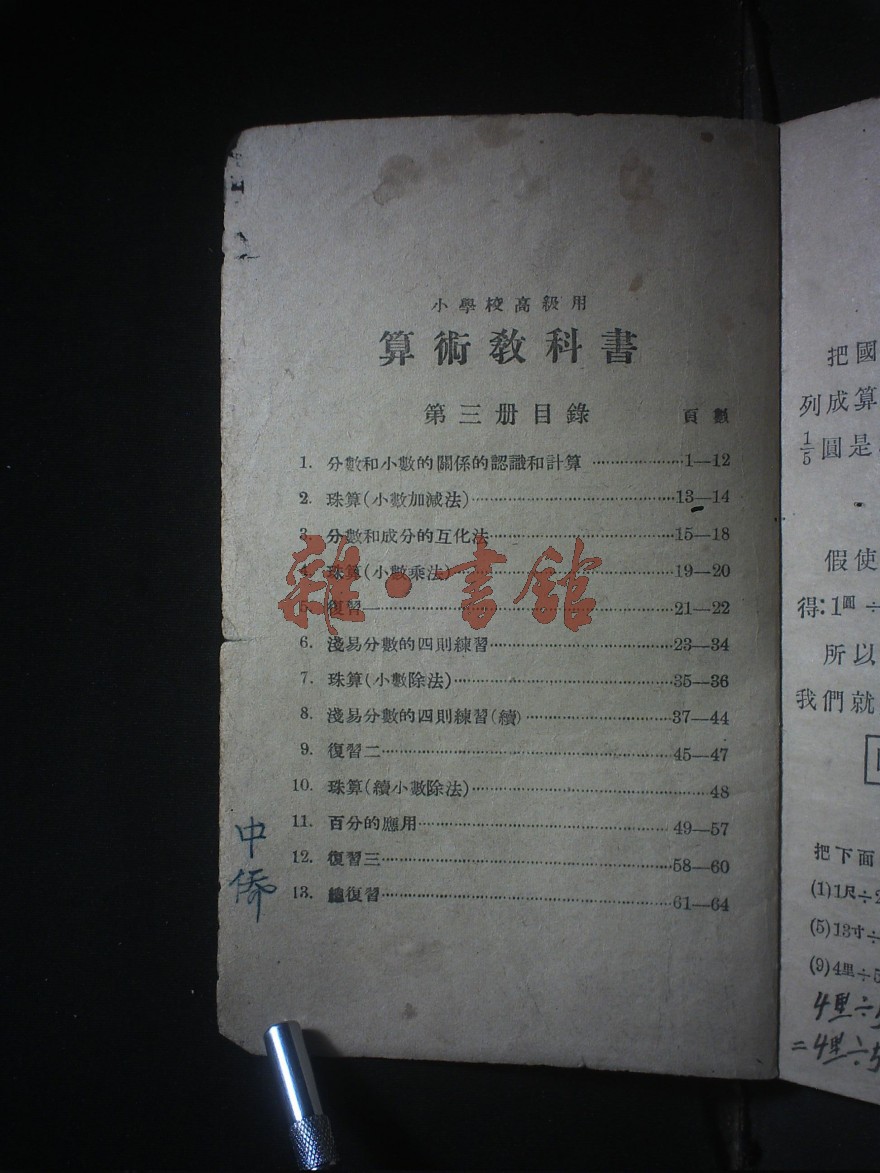 小學校高級用
算術教科書
第三册目錄 頁數
1. 分數和小數的關係的認識和計算 ⋯⋯ 1—12
2. 珠算(小數加減法)⋯⋯13—14
3. 分數和成分的互化法⋯⋯15—18
4. 珠算(小數乘法)⋯⋯19—20
5. 復習一⋯⋯21—22
6. 淺易分數的四則練習⋯⋯23—34
7. 珠算(小數除法)⋯⋯35—36
8. 淺易分數的四則練習(續)⋯⋯37—44
9. 復習二⋯⋯45—47
10. 珠算(續小數除法)⋯⋯48
11. 百分的應用⋯⋯49—57
12. 復習三⋯⋯58—60
13. 總復習⋯⋯61—64
中僑
雜·書館
把國
列成算
1/5圓是
假使
得:1圓÷
所以
我們就
把下面
(1)1尺÷2
(5)13寸÷
(9)4里÷5
4里÷5
=4里÷5